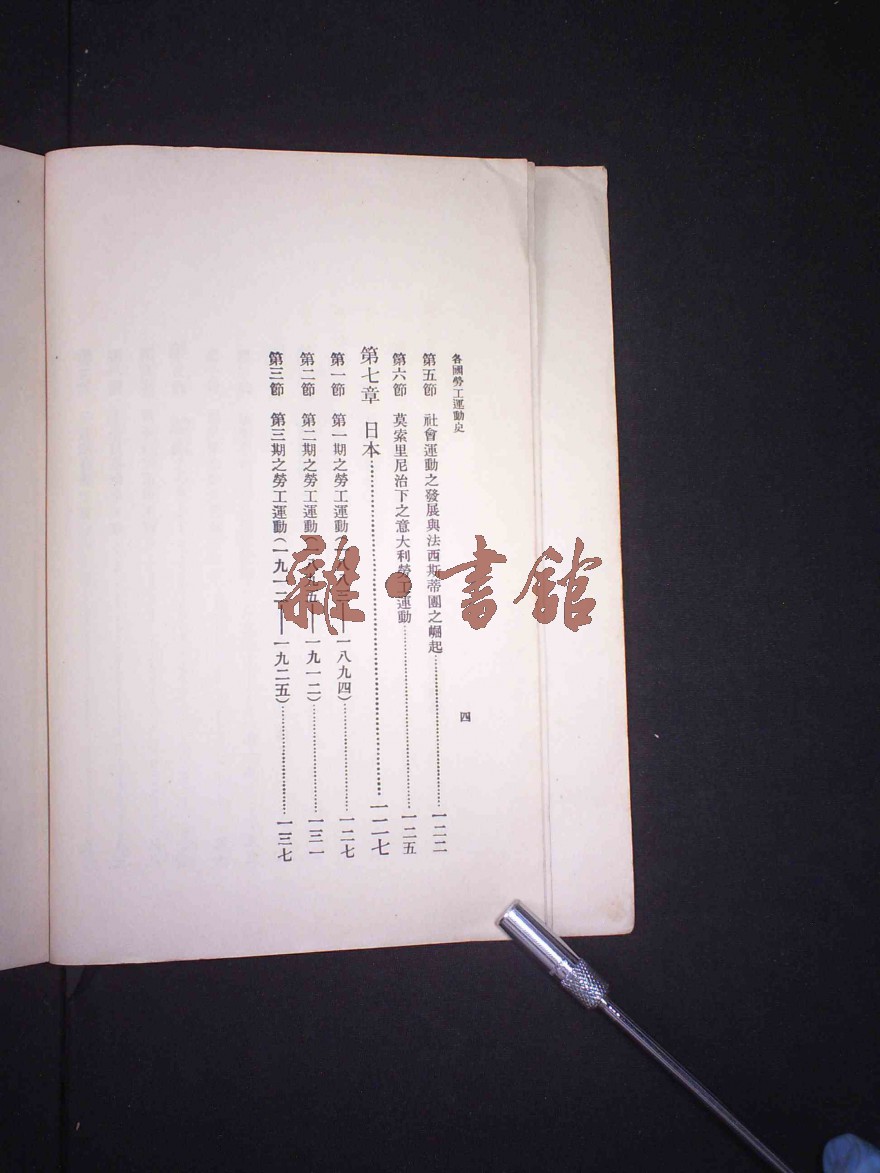 各國勞工運動史 四
第五節 社會運動之發展與法西斯蒂團之崛起……………………一二二
第六節 莫索里尼治下之意大利勞工運動……………………一二五
第七章 日本……………………一二七
第一節 第一期之勞工運動(一八八三——一八九四)……………………一二七
第二節 第二期之勞工運動(一八九五——一九一二)……………………一三一
第三節 第三期之勞工運動(一九一二——一九二五)……………………一三七
雜·書館